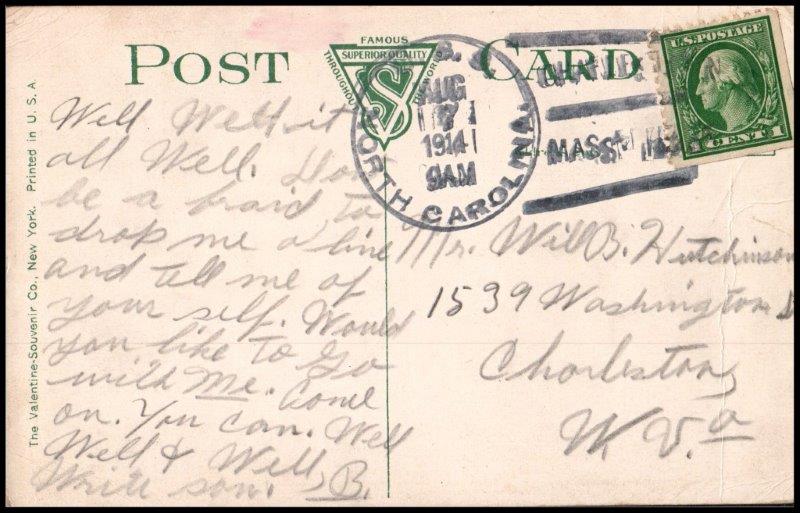 POST CARD
FAMOUS
SUPERIOR QUALITY
THROUGHOUT THE WORLD
VS
U.S.
AUG
7
1914
9AM
NORTH CAROLINA
MASS
U.S. POSTAGE
1 CENT 1
Well Well it
all Well. Don
be a fraid to
drop me a line
and tell me of
your self. Would
you like to go
with me. Come
on. You can. Well
Well & Well
Write son. B.
Mr. Will B. Hutchinson
1539 Washington S
Charleston,
W. Va
The Valentine-Souvenir Co., New York. Printed in U. S. A.